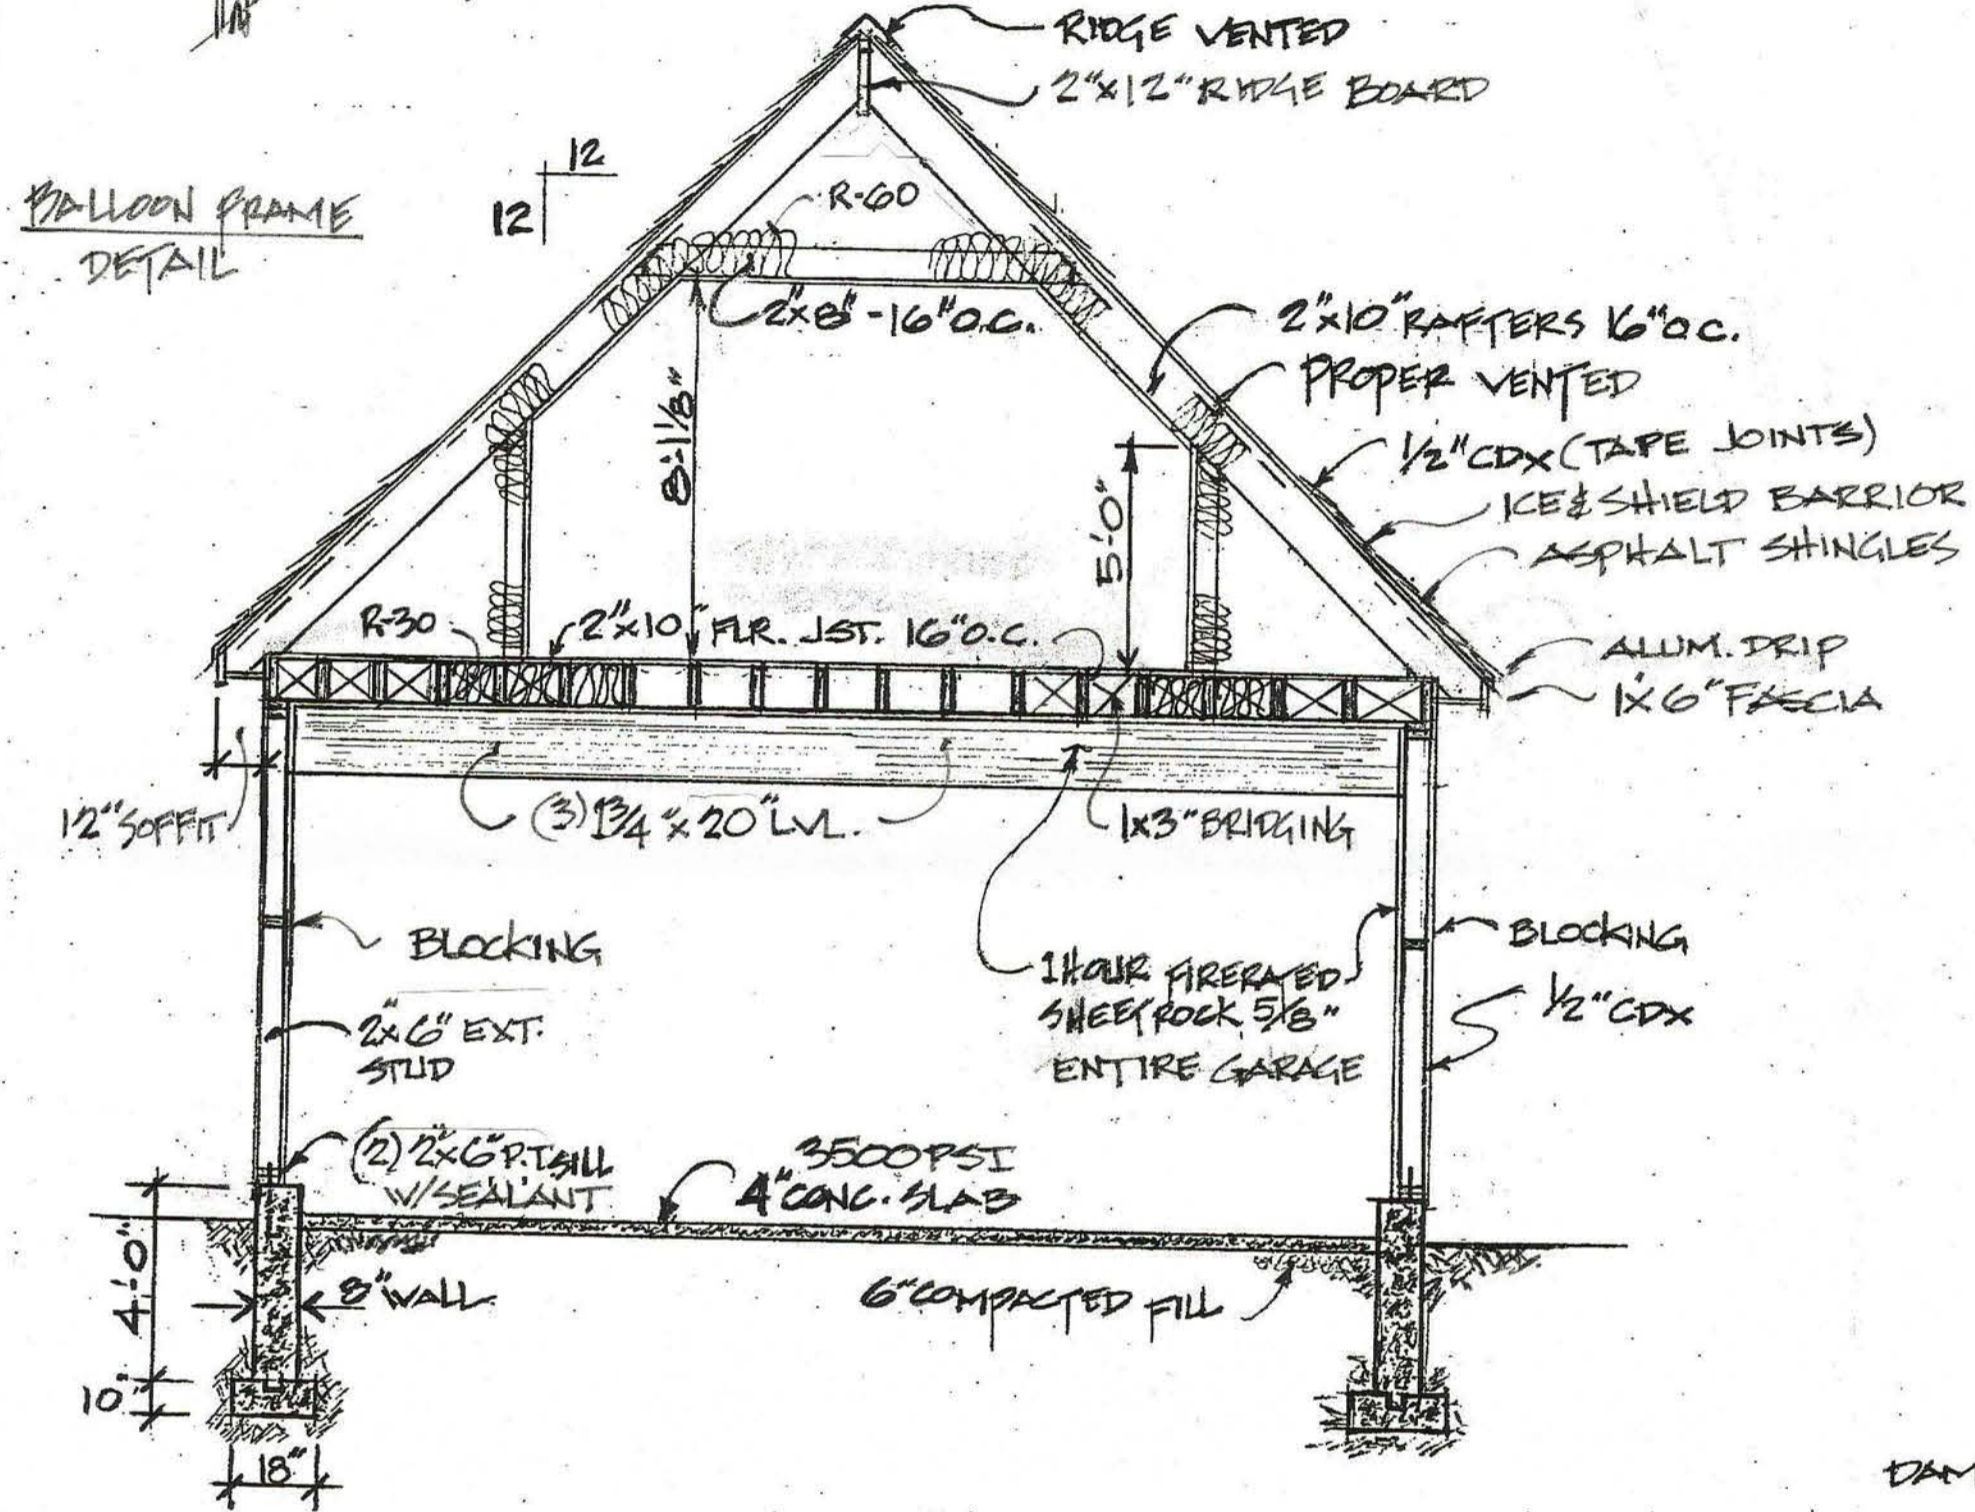 RIDGE VENTED
2"x12" RIDGE BOARD
12
12
BALLOON FRAME
DETAIL
R-60
2"x8" - 16" O.C.
2"x10" RAFTERS 16" O.C.
PROPER VENTED
1/2" CDX (TAPE JOINTS)
ICE & SHIELD BARRIOR
ASPHALT SHINGLES
8'-1 1/8"
5'-0"
R-30
2"x10" FLR. JST. 16" O.C.
ALUM. DRIP
1"x6" FASCIA
12" SOFFIT
(3) 1 3/4" x 20" LVL.
1x3" BRIDGING
BLOCKING
BLOCKING
1 HOUR FIRERATED
SHEETROCK 5/8"
ENTIRE GARAGE
1/2" CDX
2"x6" EXT.
STUD
(2) 2"x6" P.T SILL
W/SEALANT
3500 PSI
4" CONC. SLAB
4'-0"
8" WALL
6" COMPACTED FILL
10"
18"